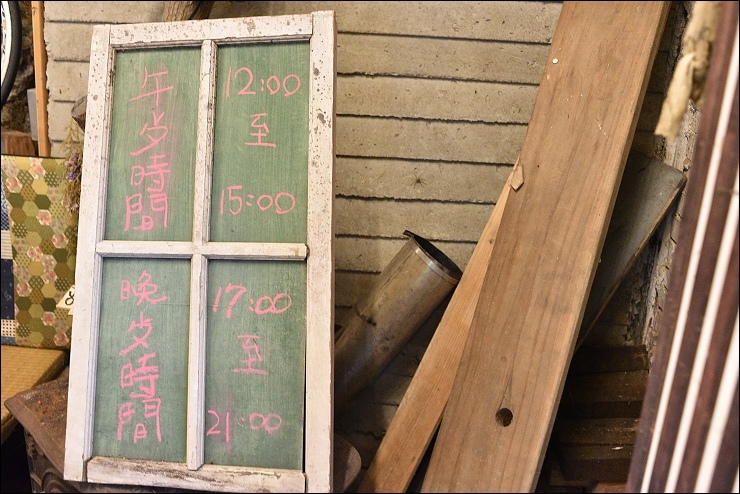 午歺時間
12:00
至
15:00
晚歺時間
17:00
至
21:00